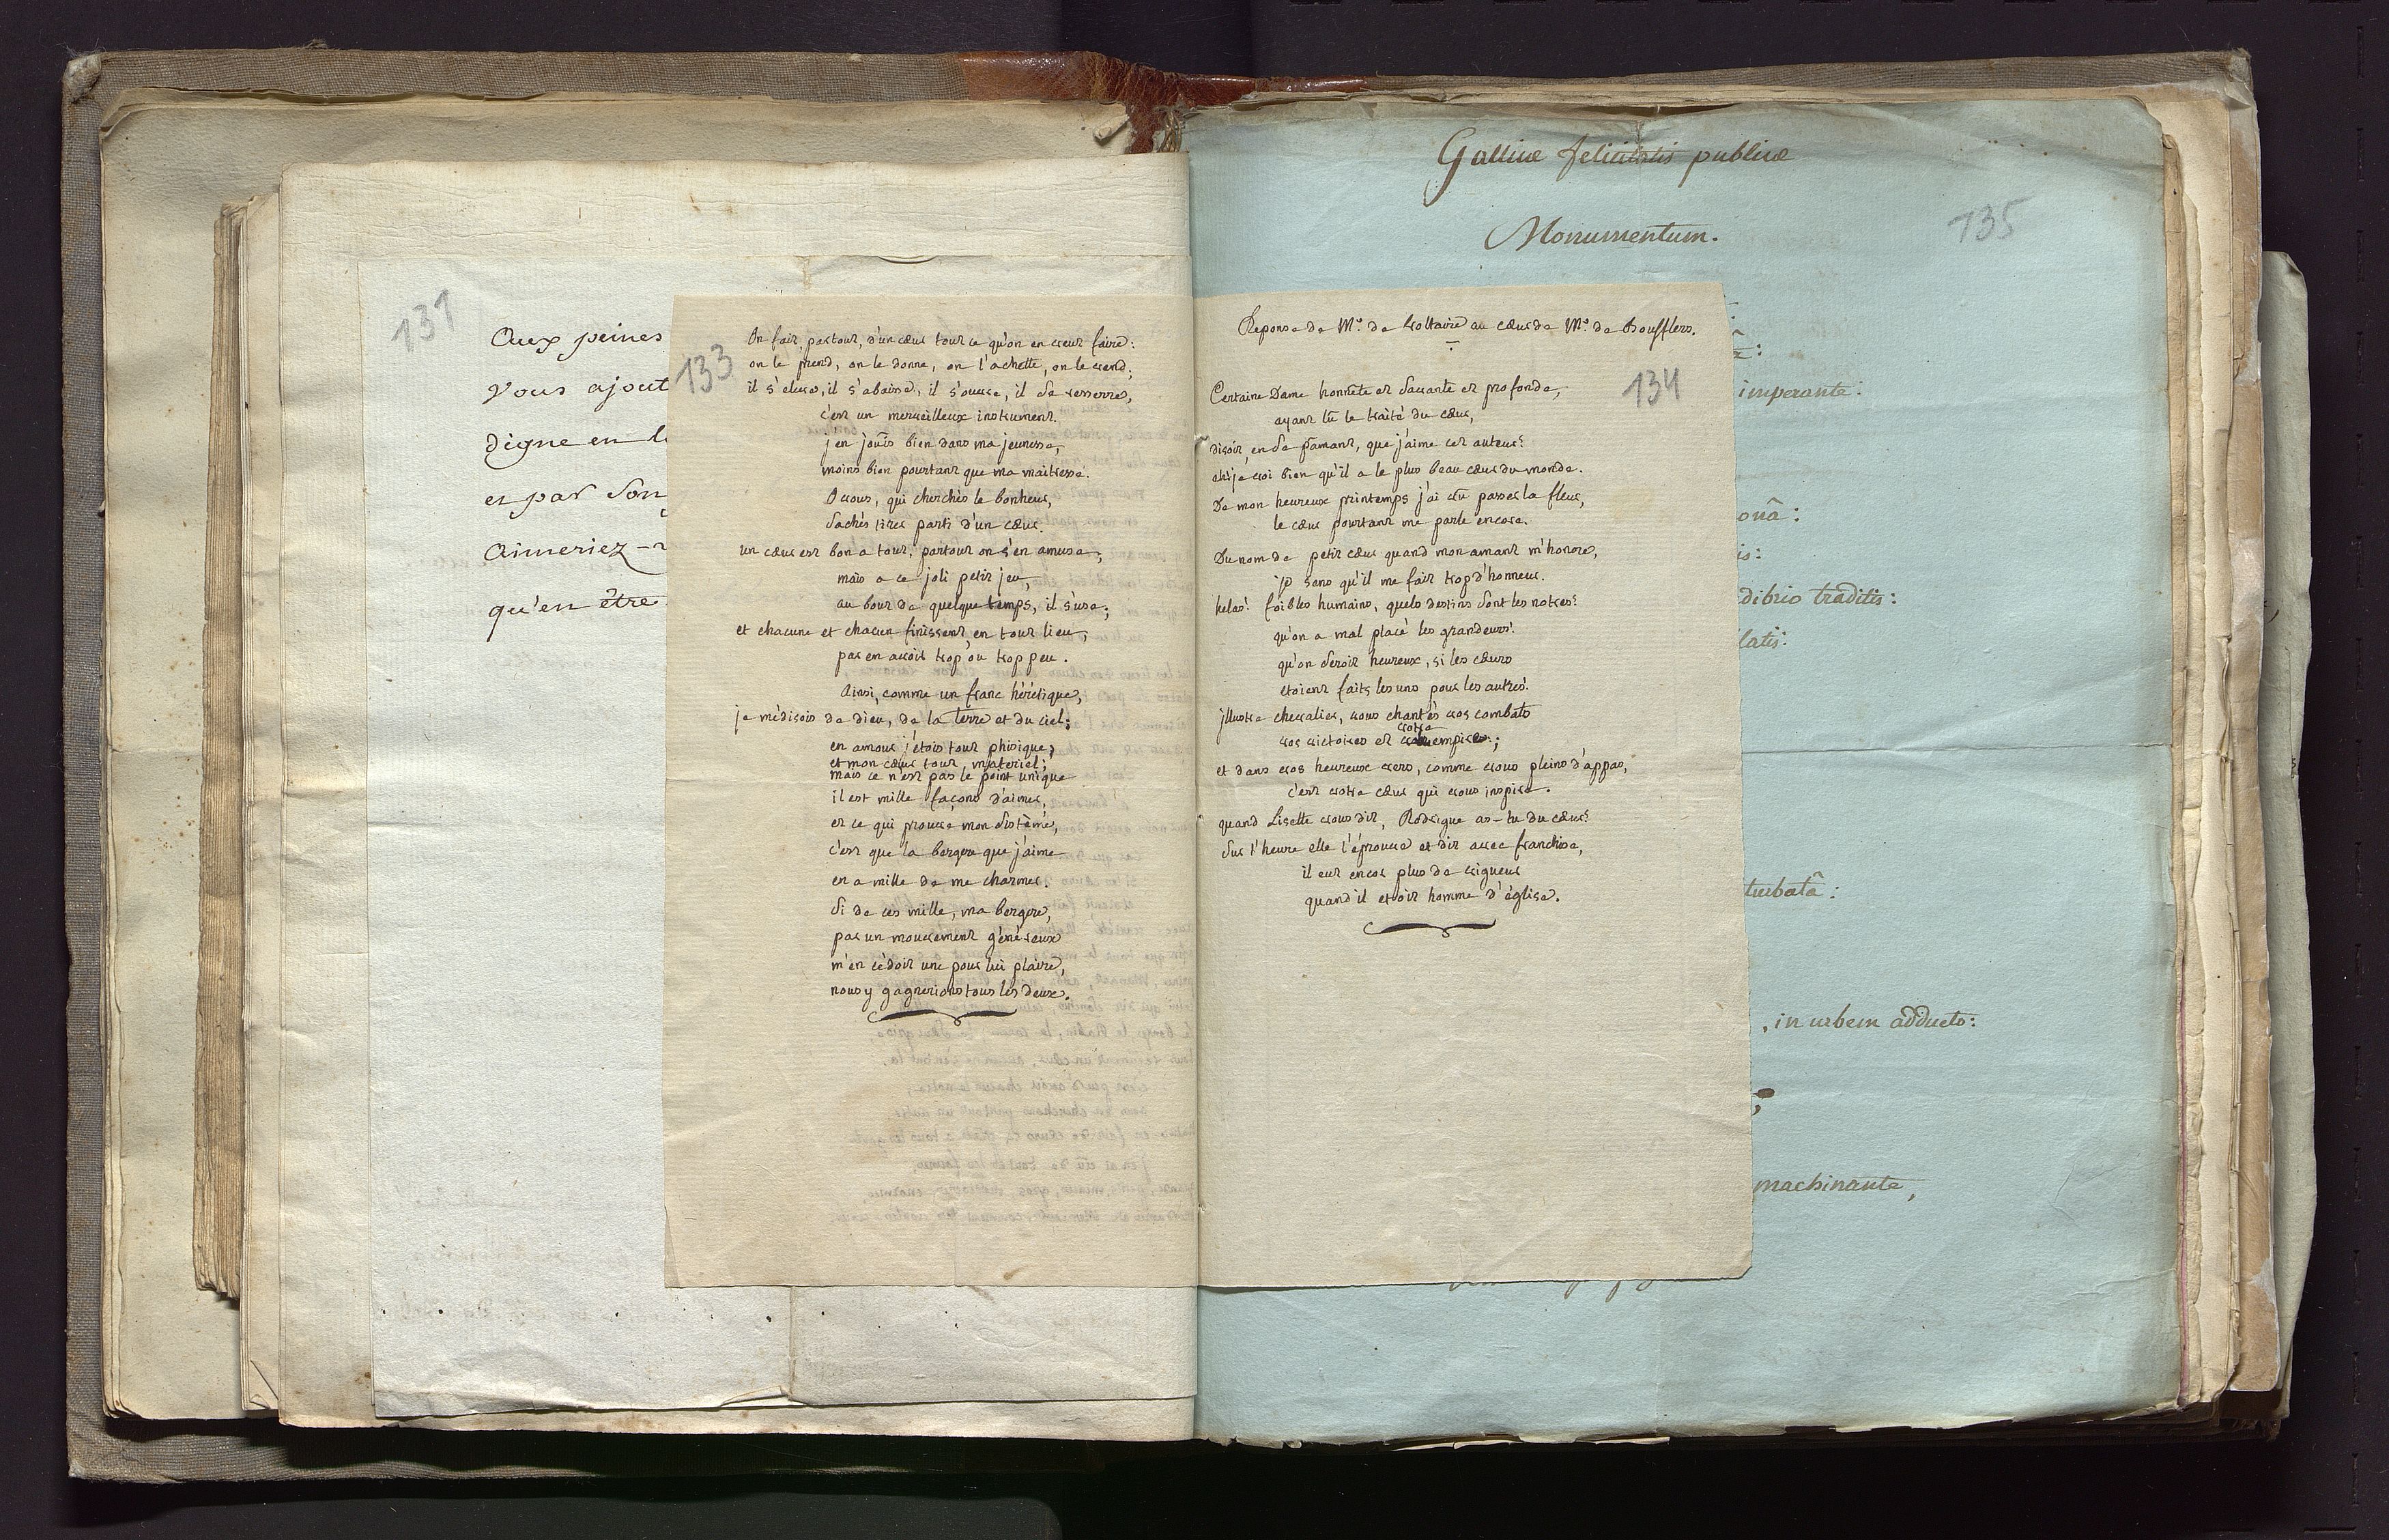 131
Aux peines
Vous ajout
digne en l
et par son
aimeriez-
qu'en être
133
On fait, partout, d'un cœur tout ce qu'on en veut faire:
on le prend, on le donne, on l'achette, on le vend;
il s'eleve, il s'abaisse, il s'ouvre, il se resserre,
c'est un merveilleux instrument.
j'en jouis bien dans ma jeunesse,
moins bien pourtant que ma maitresse.
O vous, qui cherchés le bonheur,
sachés tirer parti d'un cœur.
un cœur est bon a tout; partout on s'en amuse;
mais a ce joli petit jeu,
au bout de quelque temps, il s'use;
et chacune et chacun finissent, en tout lieu,
par en avoir trop ou trop peu.
Ainsi, comme un franc hérétique,
je médisois de dieu, de la terre et du ciel;
en amour j'étois tout phisique;
et mon cœur tout, materiel;
mais ce n'est pas le point unique
il est mille façons d'aimer,
et ce qui prouve mon sistême,
c'est que la bergere que j'aime
en a mille de me charmer.
Si de ces mille, ma bergere,
par un mouvement généreux
m'en cédoit une pour lui plaire,
nous y gagnerions tous les deux.
Reponse de Mr. de Voltaire au cœur de Mr. de Boufflers.
134
Certaine Dame honnête et savante et profonde,
ayant lû le traité du cœur,
disoit, en se pâmant, que j'aime cet auteur!
ah! je voi bien qu'il a le plus beau cœur du monde.
De mon heureux printemps j'ai vû passer la fleur,
le cœur pourtant me parle encore.
Du nom de petit cœur quand mon amant m'honore,
je sens qu'il me fait trop d'honneur.
helas! foibles humains, quels destins sont les notres!
qu'on a mal placé les grandeurs!
qu'on seroit heureux, si les cœurs
etoient faits les uns pour les autres!
jllustre chevalier, vous chantés vos combats
votre
vos victoires et empire;
et dans vos heureux vers, comme vous pleins d'appas,
c'est votre cœur qui vous inspire.
quand Lisette vous dit, Rodrigue as-tu du cœur?
sur l'heure elle l'éprouve et dit avec franchise,
il eut encor plus de vigueur
quand il etoit homme d'église.
Galliæ felicitatis publicæ
Monumentum.
135
imperante:
onâ:
is:
dibrio traditis:
latis:
turbatâ:
, in urbem adducto:
;
machinante,